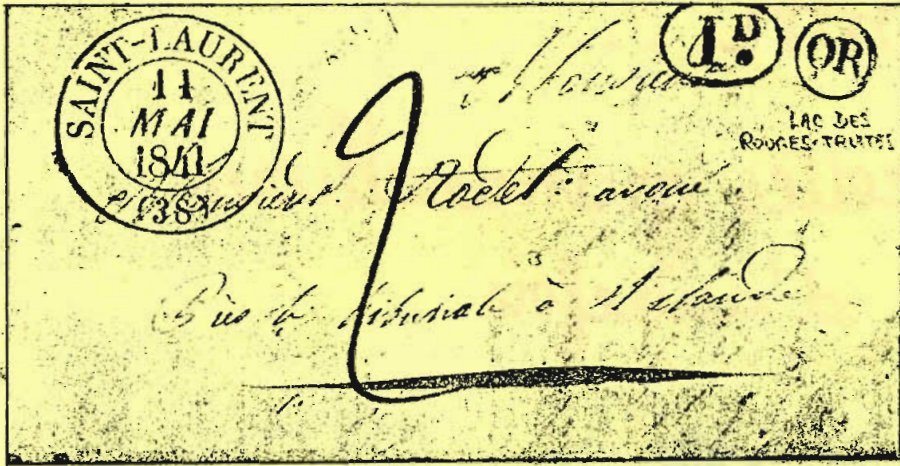 SAINT-LAURENT
11
MAI
1841
(38)
1D.
OR
LAC DES
ROUGES-TRUITES
2
Monsieur
Monsieur Rodet avoué
Près le tribunal à St Claude